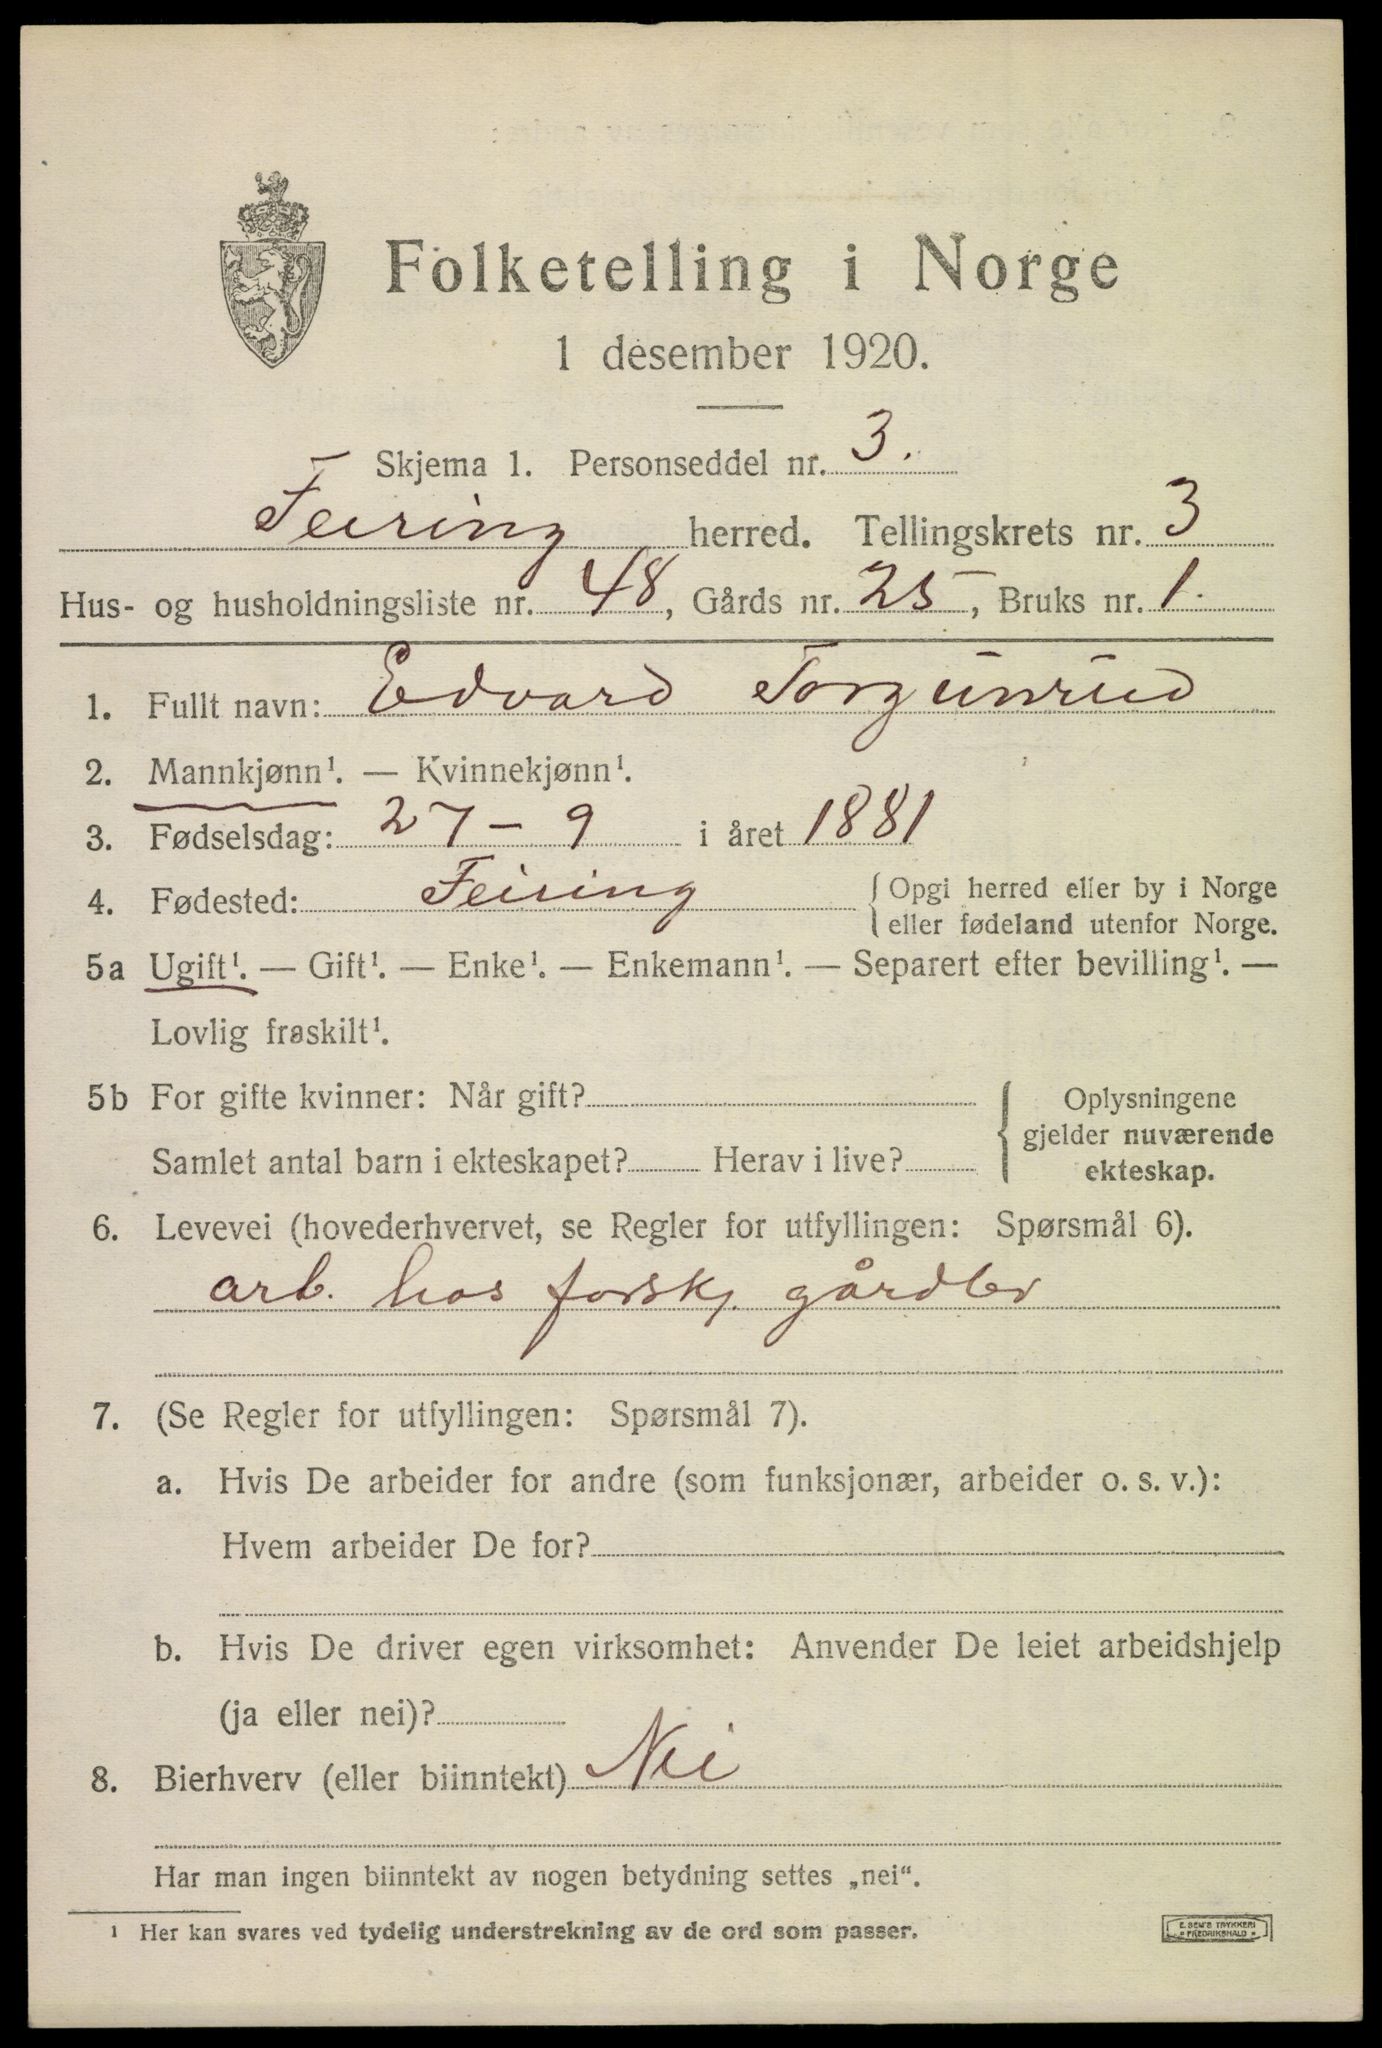 Folketelling i Norge
1 desember 1920.
Skjema 1. Personseddel nr. 3.
Feiring herred. Tellingskrets nr. 3
Hus- og husholdningsliste nr. 48, Gårds nr. 25, Bruks nr. 1.
1. Fullt navn: Edvard Torgunrud
2. Mannkjønn¹. — Kvinnekjønn¹.
3. Fødselsdag: 27 - 9 i året 1881
4. Fødested: Feiring { Opgi herred eller by i Norge
eller fødeland utenfor Norge.
5a Ugift¹. — Gift¹. — Enke¹. — Enkemann¹. — Separert efter bevilling¹. —
Lovlig fraskilt¹.
5b For gifte kvinner: Når gift?
Samlet antal barn i ekteskapet? Herav i live?
Oplysningene
gjelder nuværende
ekteskap.
6. Levevei (hovederhvervet, se Regler for utfyllingen: Spørsmål 6).
arb. hos forskj. gårdbr
7. (Se Regler for utfyllingen: Spørsmål 7).
a. Hvis De arbeider for andre (som funksjonær, arbeider o. s. v.):
Hvem arbeider De for?
b. Hvis De driver egen virksomhet: Anvender De leiet arbeidshjelp
(ja eller nei)?
8. Bierhverv (eller biinntekt) Nei
Har man ingen biinntekt av nogen betydning settes „nei“.
¹ Her kan svares ved tydelig understrekning av de ord som passer.
E. SEM'S TRYKKERI
* FREDRIKSHALD *